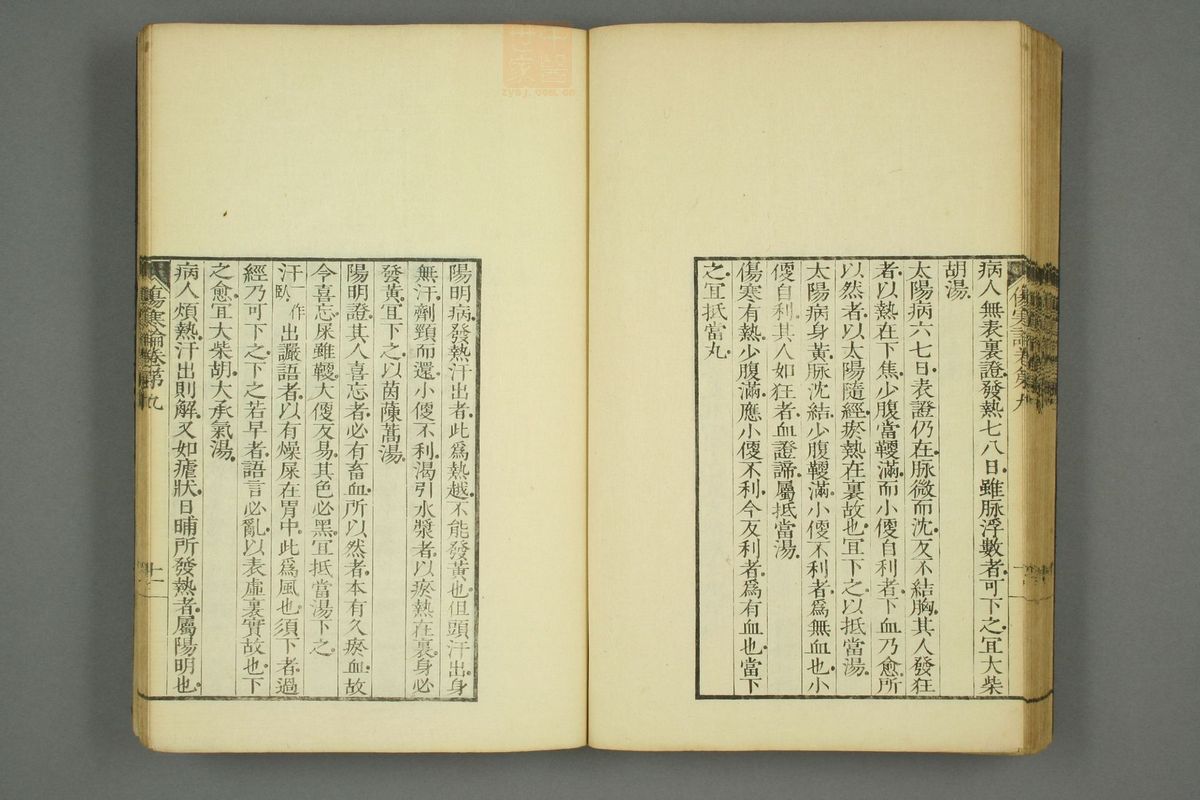 病人無表裏證發熱七八日雖脉浮數者可下之宜大柴
胡湯
太陽病六七日表證仍在脉微而沈反不結胸其人發狂
者以熱在下焦少腹當鞕滿而小便自利者下血乃愈所
以然者以太陽隨經瘀熱在裏故也宜下之以抵當湯
太陽病身黃脉沈結少腹鞕滿小便不利者爲無血也小
便自利其人如狂者血證諦屬抵當湯
傷寒有熱少腹滿應小便不利今反利者爲有血也當下
之宜抵當丸
陽明病發熱汗出者此爲熱越不能發黃也但頭汗出身
無汗劑頸而還小便不利渴引水漿者以瘀熱在裏身必
發黃宜下之以茵蔯蒿湯
陽明證其人喜忘者必有畜血所以然者本有久瘀血故
令喜忘屎雖鞕大便反易其色必黑宜抵當湯下之
汗一作臥出讝語者以有燥屎在胃中此爲風也須下者過
經乃可下之下之若早者語言必亂以表虛裏實故也下
之愈宜大柴胡大承氣湯
病人煩熱汗出則解又如瘧狀日晡所發熱者屬陽明也
傷寒論卷第九
zysj.com.cn